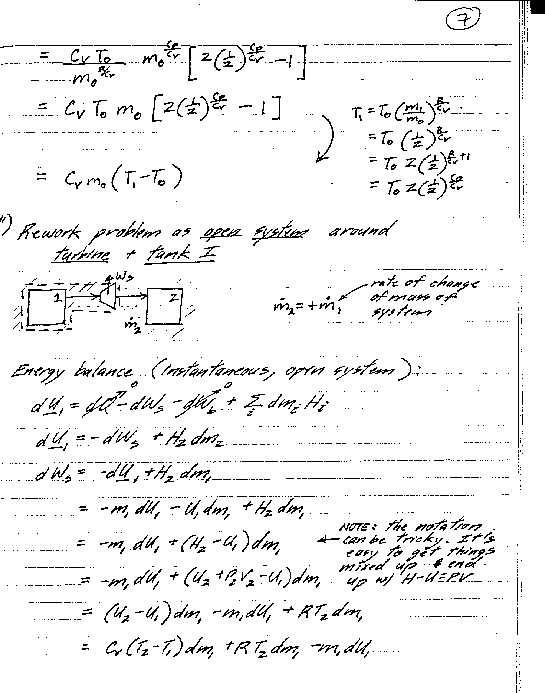 7
= CvT₀/m₀^(R/Cv) m₀^(Cp/Cv) [2(1/2)^(Cp/Cv) - 1]
= CvT₀m₀[2(1/2)^(Cp/Cv) - 1]
T₁ = T₀(m₁/m₀)^(R/Cv)
= T₀(1/2)^(R/Cv)
= T₀2(1/2)^(R/Cv + 1)
= T₀2(1/2)^(Cp/Cv)
= Cvm₀(T₁-T₀)
") Rework problem as open system around
turbine + tank I
1 Ws 2
ṁ₂
ṁ₂ = +ṁ₁
rate of change
of mass of
system
Energy balance (instantaneous, open system):
dU₁ = dQ⁰ - dWs - dWb⁰ + Σ dmᵢHᵢ
dU₁ = -dWs + H₂dm₂
dWs = -dU₁ + H₂dm₁
= -m₁dU₁ - U₁dm₁ + H₂dm₁
= -m₁dU₁ + (H₂-U₁)dm₁
= -m₁dU₁ + (U₂+P₂V₂-U₁)dm₁
NOTE: the notation
can be tricky. It is
easy to get things
mixed up & end
up w/ H-U≡PV
= (U₂-U₁)dm₁ - m₁dU₁ + RT₂dm₁
= Cv(T₂-T₁)dm₁ + RT₂dm₁ - m₁dU₁